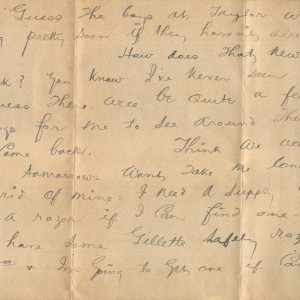 Guess the boys at Taylor
pretty soon if they havent
How does that new
? You know I've never seen
there will be quite a few
for me to see around The
come back. Think we
tomorrow - Wont take me long
rid of mine - I need a supply
a razor if I can find one -
have some Gillette safety
& I'm going to get one if I can